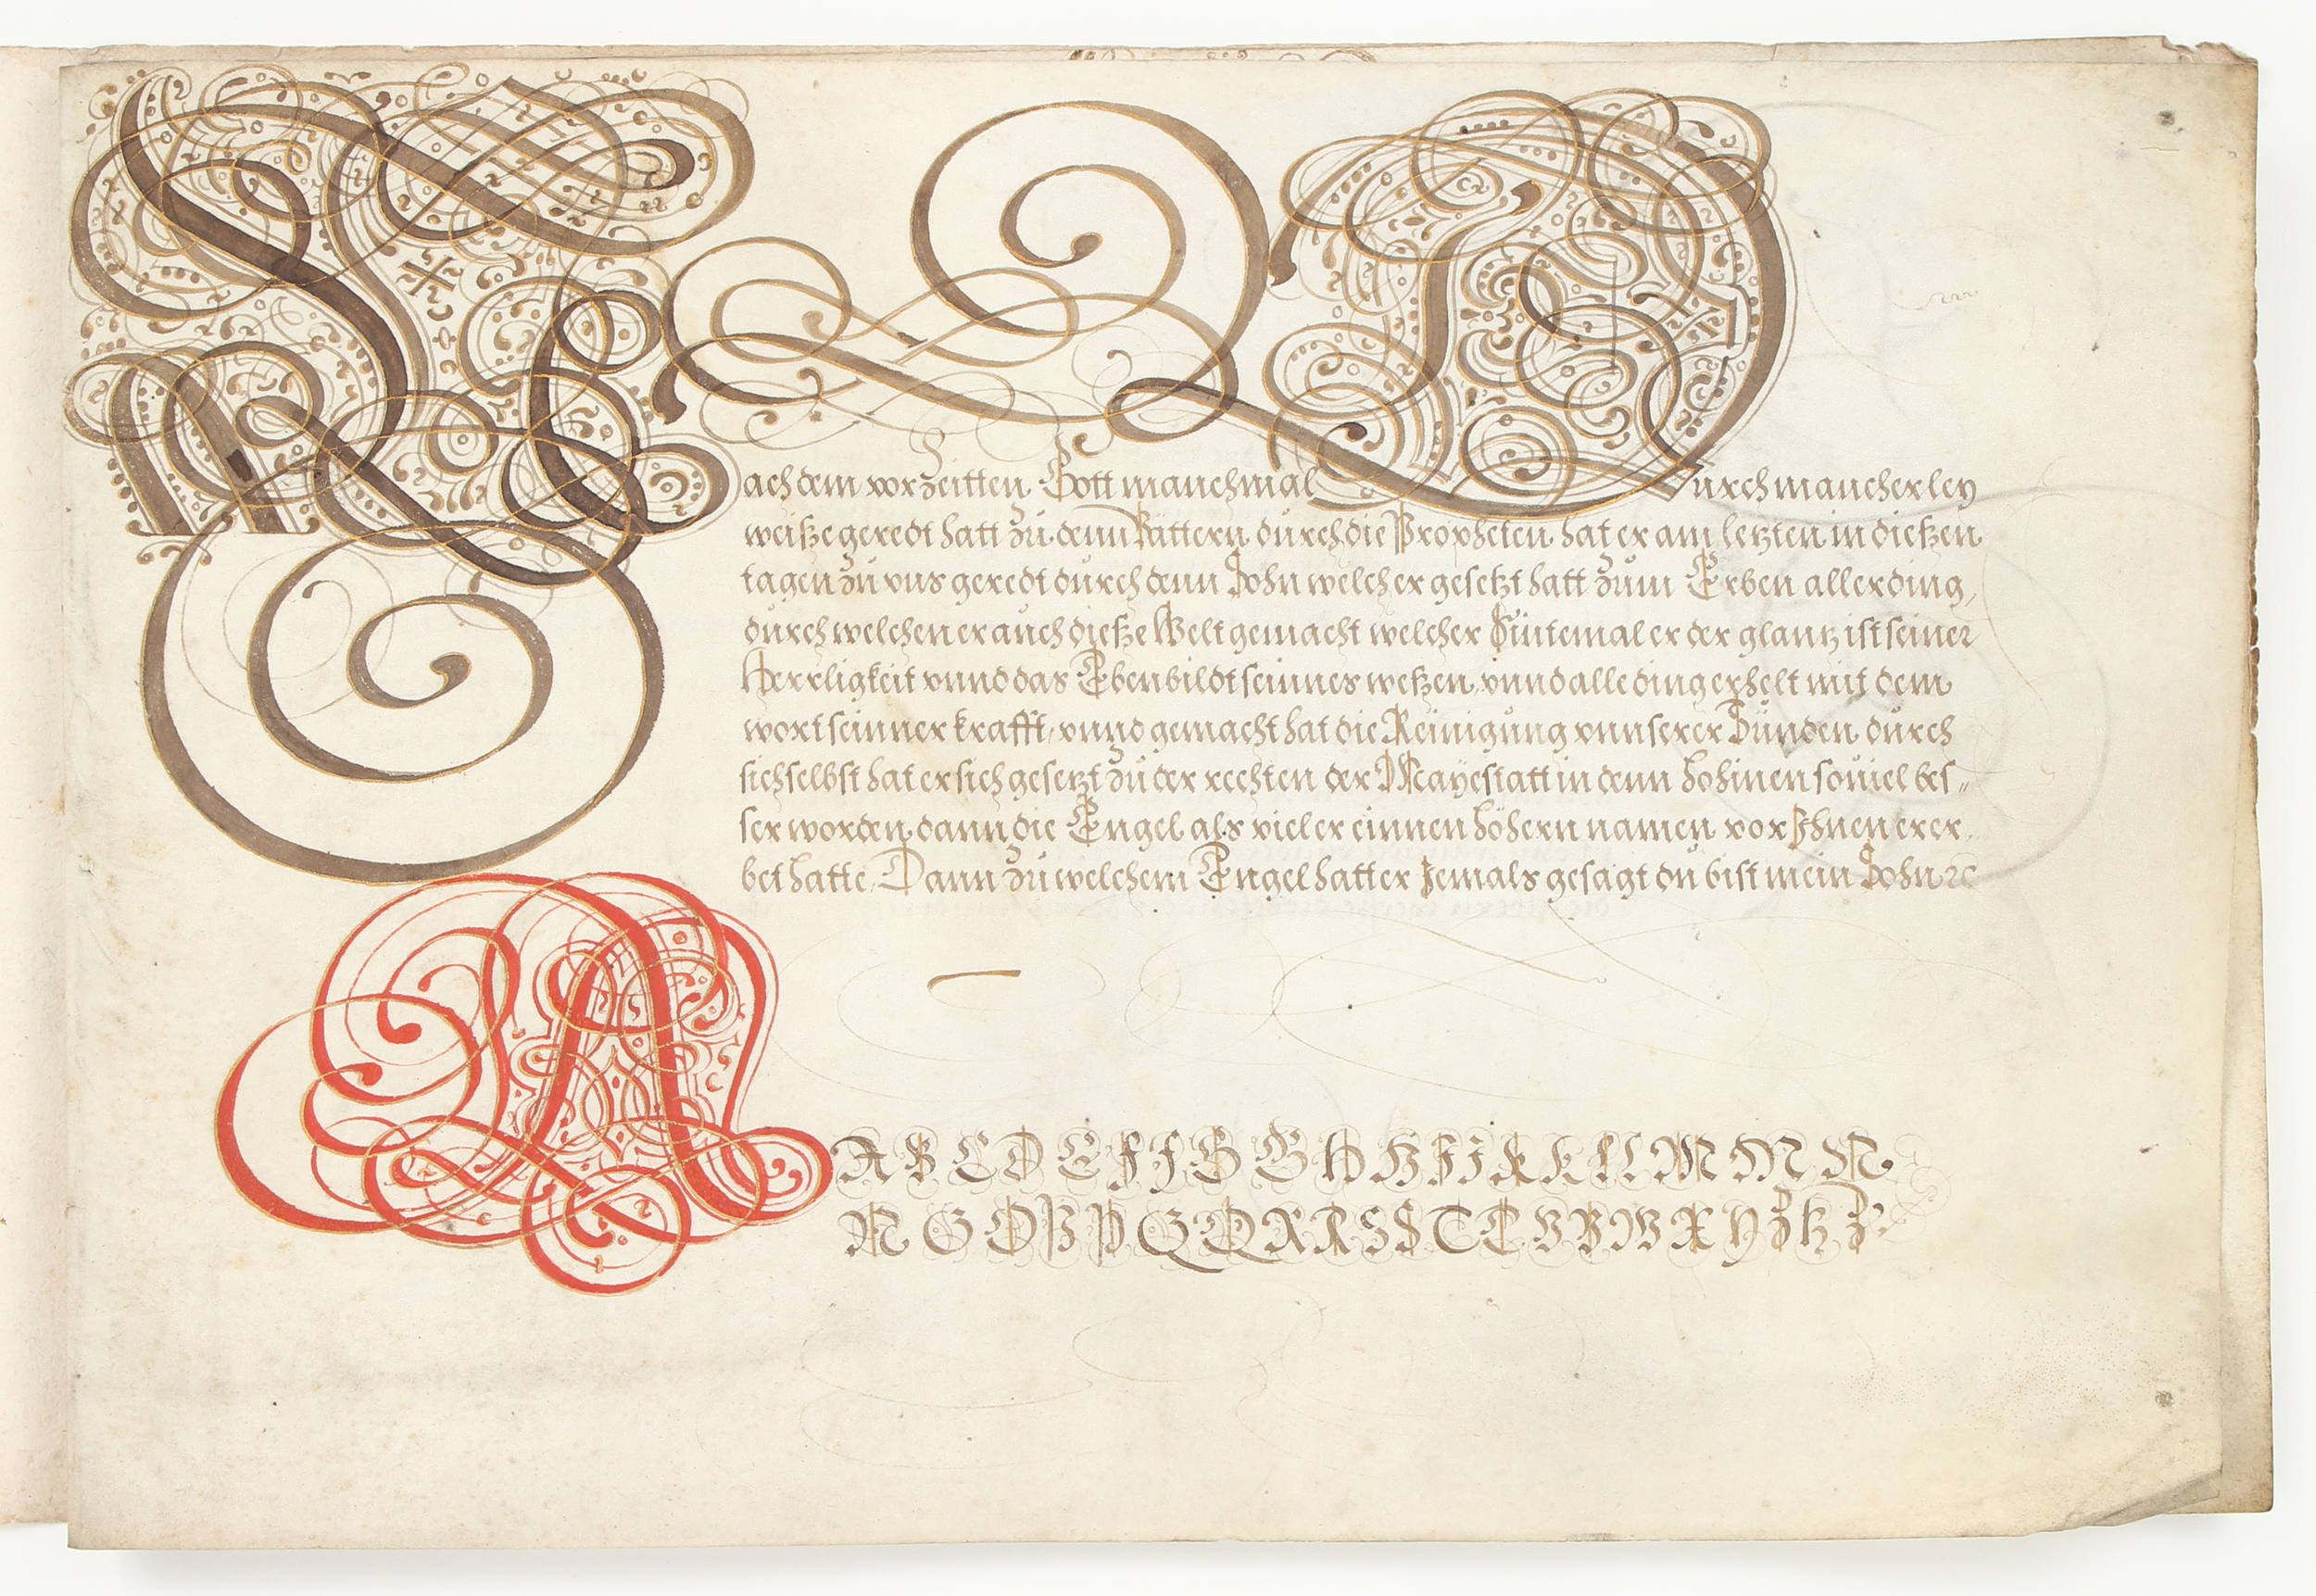 Nachdem vorzeitten Gott manchmal Durch mancherley
weisze geredt hatt zu denn Vättern durch die Propheten hat er am letzten in dieszen
tagen zu vns geredt durch denn Sohn welcher gesetzt hatt zum Erben allerding,
durch welchen er auch diesze Welt gemacht welcher Sintemal er der glantz ist seiner
Herrligkeit vnnd das Ebenbildt seinnes weszen, vnnd alle ding erhelt mit dem
wort seinner krafft, vnnd gemacht hat die Reinigung vnnserer Sünden durch
sich selbst hat er sich gesetzt zu der rechten der Mayestatt in denn hohinen souiel bes„
ser worden dann die Engel als vieler einnen höhern namen vor Ihnen erer„
bet hatte, Dann zu welchem Engel hatt er Jemals gesagt du bist mein Sohn ꝛc
A B C D E F F G G H H J J K K L L M M N
N O O P P Q Q R R S S T T V V W X Y Z tz Z